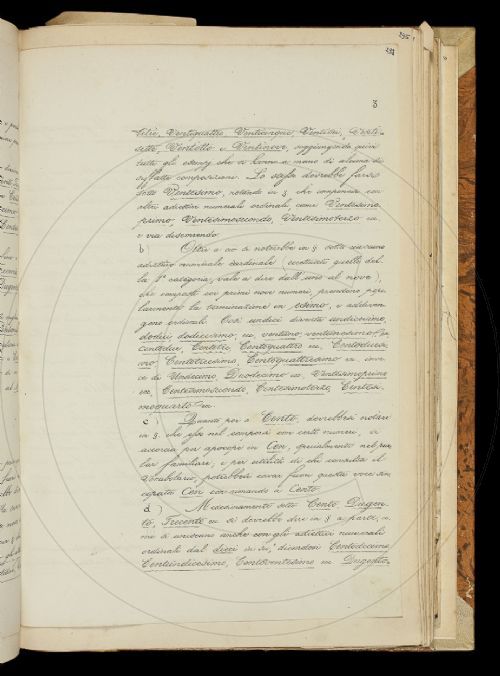 295
298
3
titrè, Ventiquattro, Venticinque, Ventisei, Venti-
sette, Ventotto e Ventinove, soggiungendo quivi
tutti gli esempj che si hanno a mano di alcuna di
siffatte composizioni. Lo stesso dovrebbe farsi
sotto Ventesimo, notando in § che componesi con
altri adiettivi numerali ordinali come Ventesimo
primo, Ventesimosecondo, Ventesimoterzo ec.
e via discorrendo.
b) Oltre a ciò si noterebbe in § sotto ciascuno
adiettivo numerale cardinale (eccettuato quelli del-
la 1ª categoria, vale a dire dall'uno al nove),
che composti coi primi nove numeri, prendono
larmente la terminazione in esimo, e addiven-
gono ordinali. Così undici diventa undicesimo,
dodici dodicesimo, ec. ventuno, ventunesimo
Centotré, Centoquattro ec. Centotre-
Centotreesimo, Centoquattresimo ec. in
ce di Undecimo, Duodecimo ec. Ventesimoprimo
ec. Centesimosecondo, Centesimoterzo, Centesi-
moquarto ec.
c) Quanto poi a Cento, dovrebbesi notare
in § che esso nel comporsi con certi numeri, si
accorcia per apocope in Cen, specialmente nel par-
lar familiare; e per utilità di chi consulta il
Vocabolario, potrebbesi cavar fuori questa voce sin-
copata Cen rimandando a Cento.
d) Medesimamente sotto Cento, Dugen-
to, Trecento ec. si dovrebbe dire in § a parte, co-
me si uniscono anche con gli adiettivi numerali
ordinali dal dieci in su, dicendosi Centodecimo,
Centundicesimo, Centoventesimo ec. Dugento-